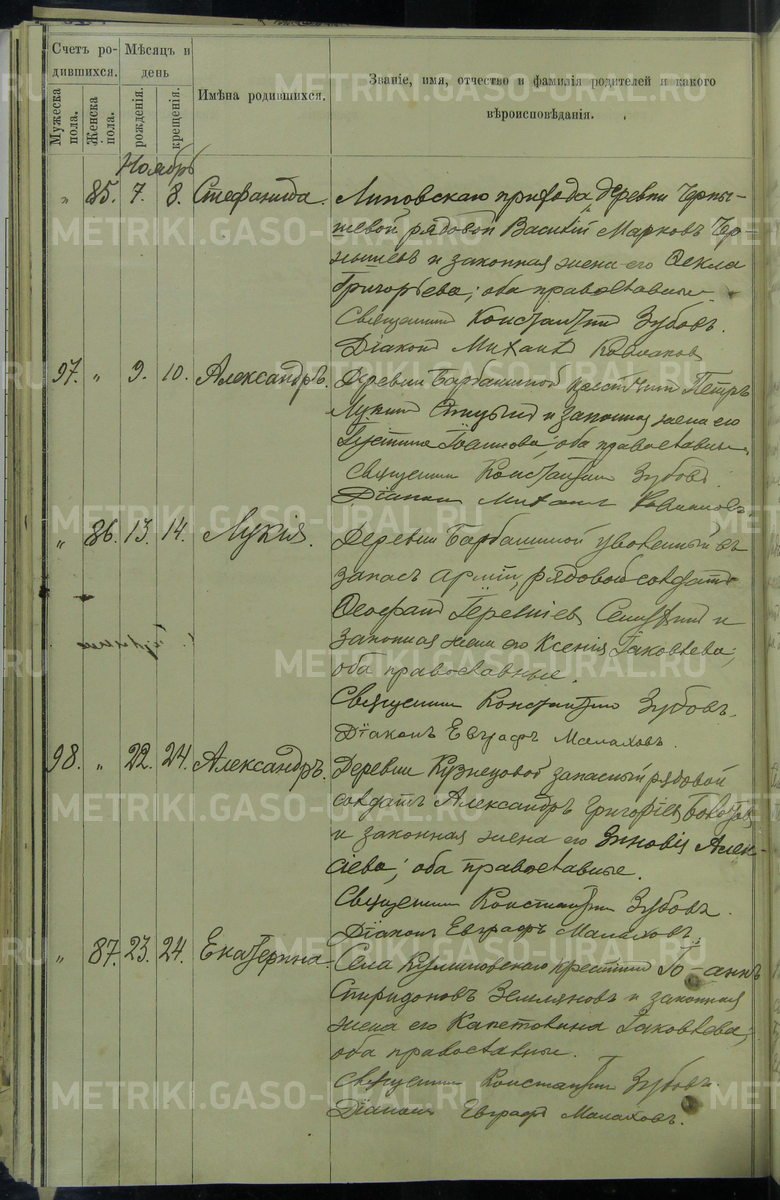 Счетъ ро-
дившихся.
Мѣсяцъ и
день
Имѣна родившихся.
Званіе, имя, отчество и фамилія родителей и какого
вѣроисповѣданія.
Мужеска
пола.
Женска
пола.
рожденія.
крещенія.
Ноябрь
„ 85. 7. 8. Стефанида. Липовскаго прихода деревни Черны-
шевой рядовой Василій Марковъ Чер-
нышевъ и законная жена его Ѳекла
Григорьева; оба православные.
Священникъ Константинъ Зубовъ.
Діаконъ Михаилъ
97. „ 9. 10. Александръ. Деревни Барбашиной крестьян. Петръ
Лукинъ и законная жена его
Іустина Іоаннова; оба православные.
Священникъ Константинъ Зубовъ.
Діаконъ Михаилъ
„ 86. 13. 14. Лукія. Деревни Барбашиной уволенный въ
запасъ арміи, рядовой солдатъ
Ѳеофанъ и
законная жена его Ксенія Іаковлева;
оба православные.
Священникъ Константинъ Зубовъ.
Діаконъ Евграфъ Малаховъ.
98. „ 22. 24. Александръ. Деревни Кузнецовой запасный рядовой
солдатъ Александръ Григорьевъ
и законная жена его Зиновія Алек-
сіева; оба православные.
Священникъ Константинъ Зубовъ.
Діаконъ Евграфъ Малаховъ.
„ 87. 23. 24. Екатерина. Села крестьян. Іо-аннъ
Спиридоновъ Земляновъ и законная
жена его Капетолина Іаковлева;
оба православные.
Священникъ Константинъ Зубовъ.
Діаконъ Евграфъ Малаховъ.
METRIKI.GASO-URAL.RU